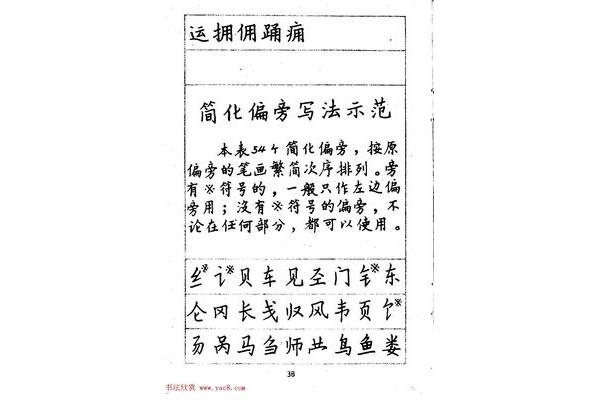 运拥佣踊痈
简化偏旁写法示范
本表54个简化偏旁，按原
偏旁的笔画繁简次序排列。旁
有※符号的，一般只作左边偏
旁用；没有※符号的偏旁，不
论在任何部分，都可以使用。
纟※讠※贝车见𢀖门钅※东
仑冈长戋归风韦页饣※
𠃓呙马刍师鸟鱼娄
38
书法欣赏 www.yac8.com